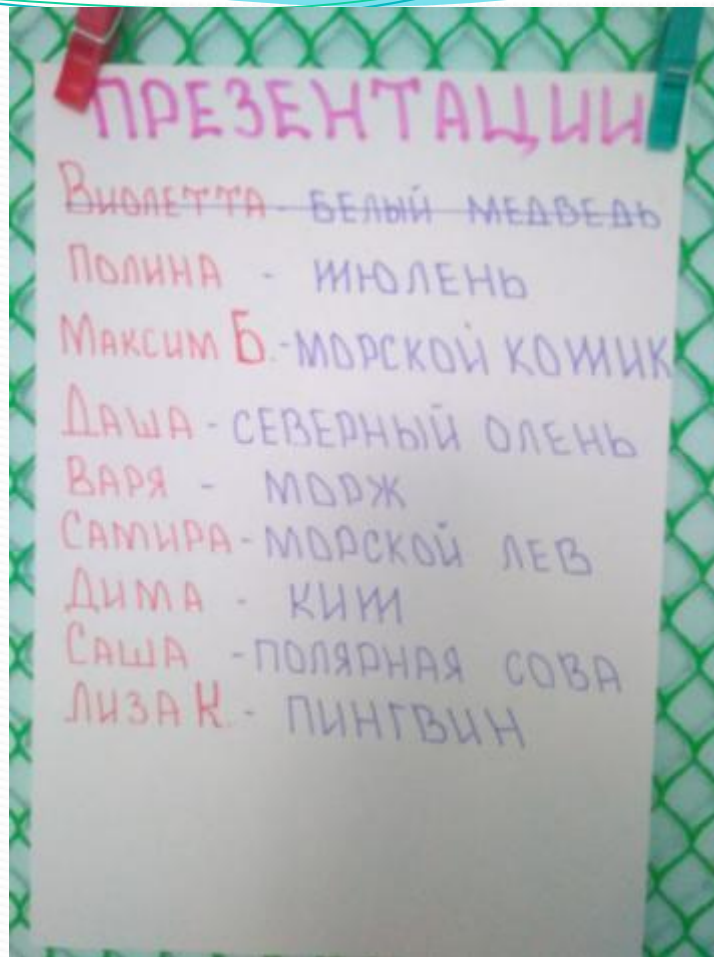 ПРЕЗЕНТАЦИИ
ВИОЛЕТТА - БЕЛЫЙ МЕДВЕДЬ
ПОЛИНА - ТЮЛЕНЬ
МАКСИМ Б. - МОРСКОЙ КОТИК
ДАША - СЕВЕРНЫЙ ОЛЕНЬ
ВАРЯ - МОРЖ
САМИРА - МОРСКОЙ ЛЕВ
ДИМА - КИТ
САША - ПОЛЯРНАЯ СОВА
ЛИЗА К. - ПИНГВИН